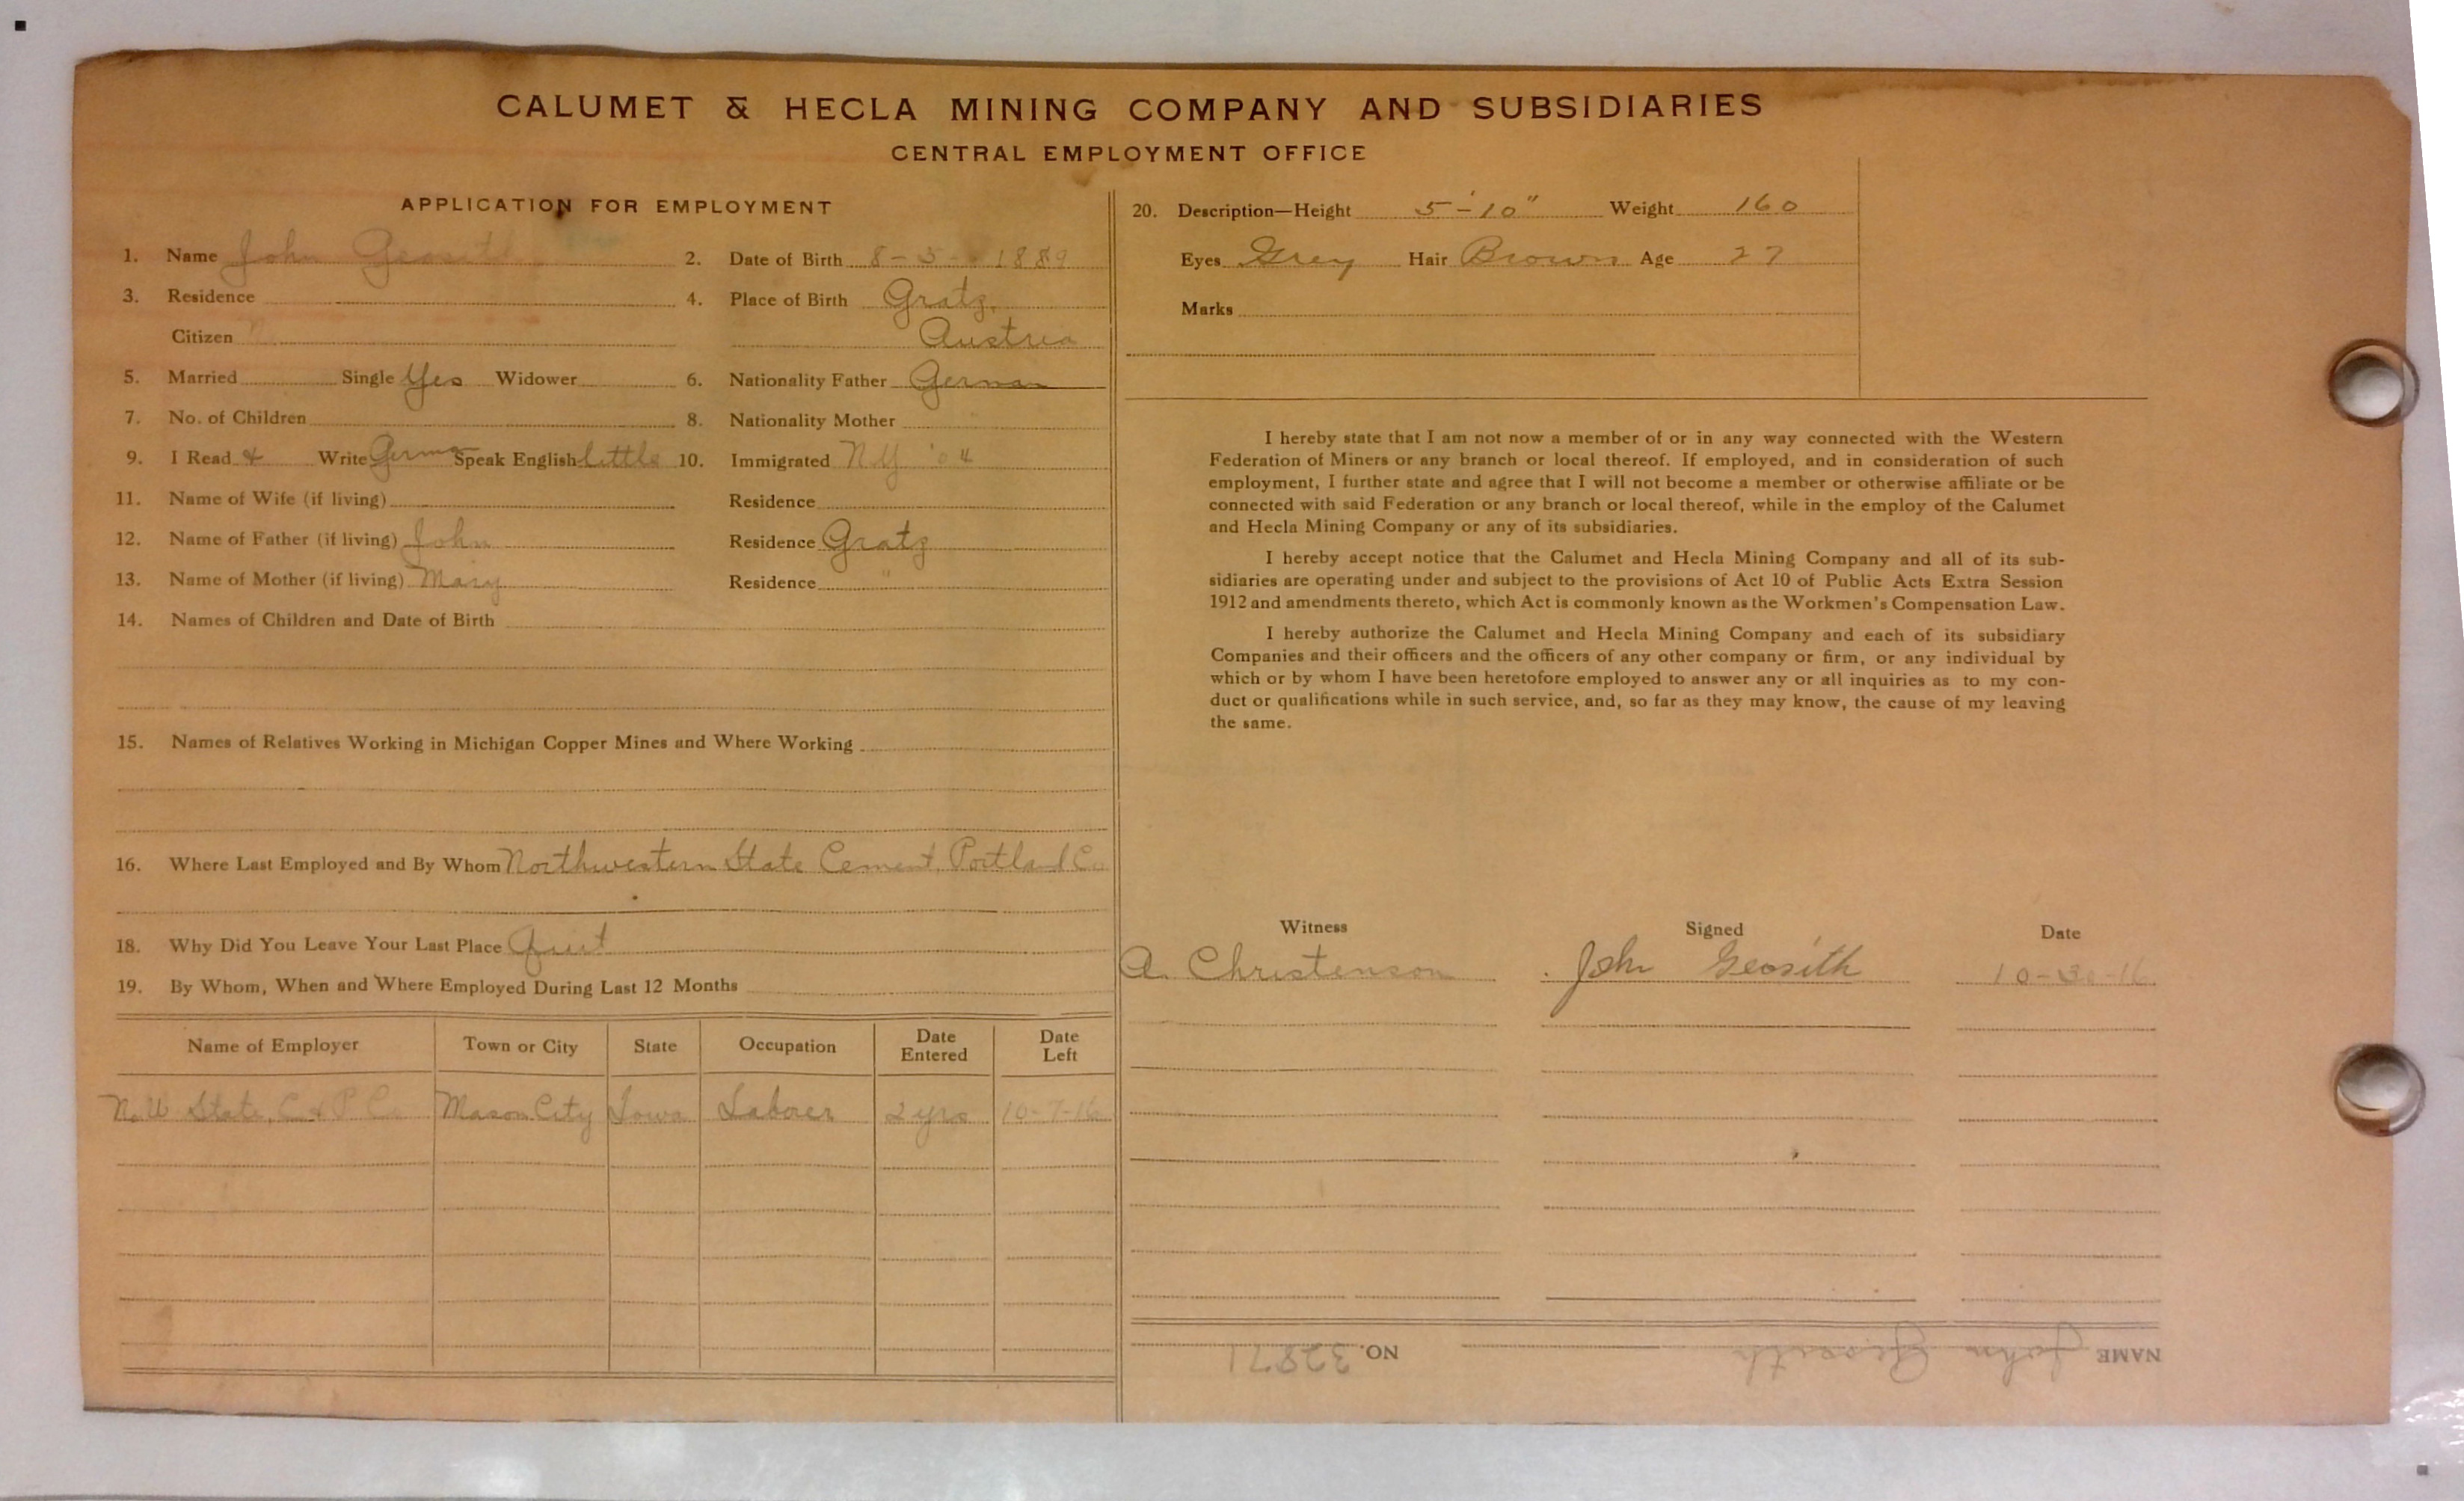 CALUMET & HECLA MINING COMPANY AND SUBSIDIARIES
CENTRAL EMPLOYMENT OFFICE
APPLICATION FOR EMPLOYMENT
1. Name John Geosith 2. Date of Birth 8-5-1889
3. Residence 4. Place of Birth Gratz,
Citizen Austria
5. Married Single Yes Widower 6. Nationality Father German
7. No. of Children 8. Nationality Mother
9. I Read & Write German Speak English little 10. Immigrated N.Y. '04
11. Name of Wife (if living) Residence
12. Name of Father (if living) John Residence Gratz
13. Name of Mother (if living) Mary Residence "
14. Names of Children and Date of Birth
15. Names of Relatives Working in Michigan Copper Mines and Where Working
16. Where Last Employed and By Whom Northwestern State Cement, Portland Co
18. Why Did You Leave Your Last Place Quit
19. By Whom, When and Where Employed During Last 12 Months
Name of Employer Town or City State Occupation Date Entered Date Left
N.W. State, C & P Co Mason City Iowa Laborer 2 yrs 10-7-16
20. Description—Height 5'-10" Weight 160
Eyes Grey Hair Brown Age 27
Marks
I hereby state that I am not now a member of or in any way connected with the Western
Federation of Miners or any branch or local thereof. If employed, and in consideration of such
employment, I further state and agree that I will not become a member or otherwise affiliate or be
connected with said Federation or any branch or local thereof, while in the employ of the Calumet
and Hecla Mining Company or any of its subsidiaries.
I hereby accept notice that the Calumet and Hecla Mining Company and all of its sub-
sidiaries are operating under and subject to the provisions of Act 10 of Public Acts Extra Session
1912 and amendments thereto, which Act is commonly known as the Workmen's Compensation Law.
I hereby authorize the Calumet and Hecla Mining Company and each of its subsidiary
Companies and their officers and the officers of any other company or firm, or any individual by
which or by whom I have been heretofore employed to answer any or all inquiries as to my con-
duct or qualifications while in such service, and, so far as they may know, the cause of my leaving
the same.
Witness Signed Date
A. Christenson John Geosith 10-30-16
NAME John Geosith NO. 32871